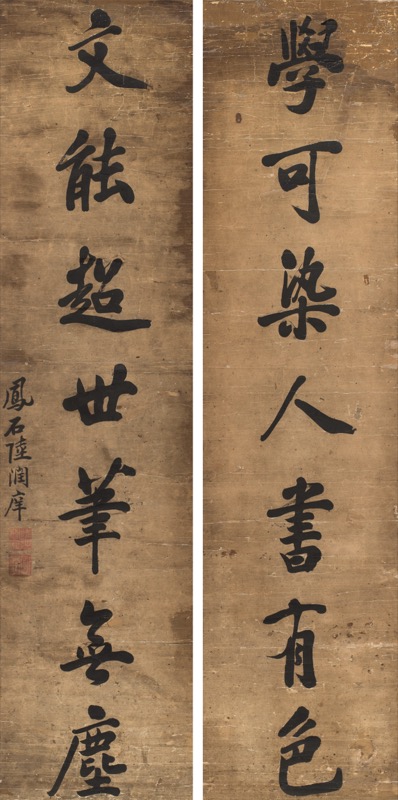 學可染人書有色
文能超世筆無塵
鳳石陸潤庠